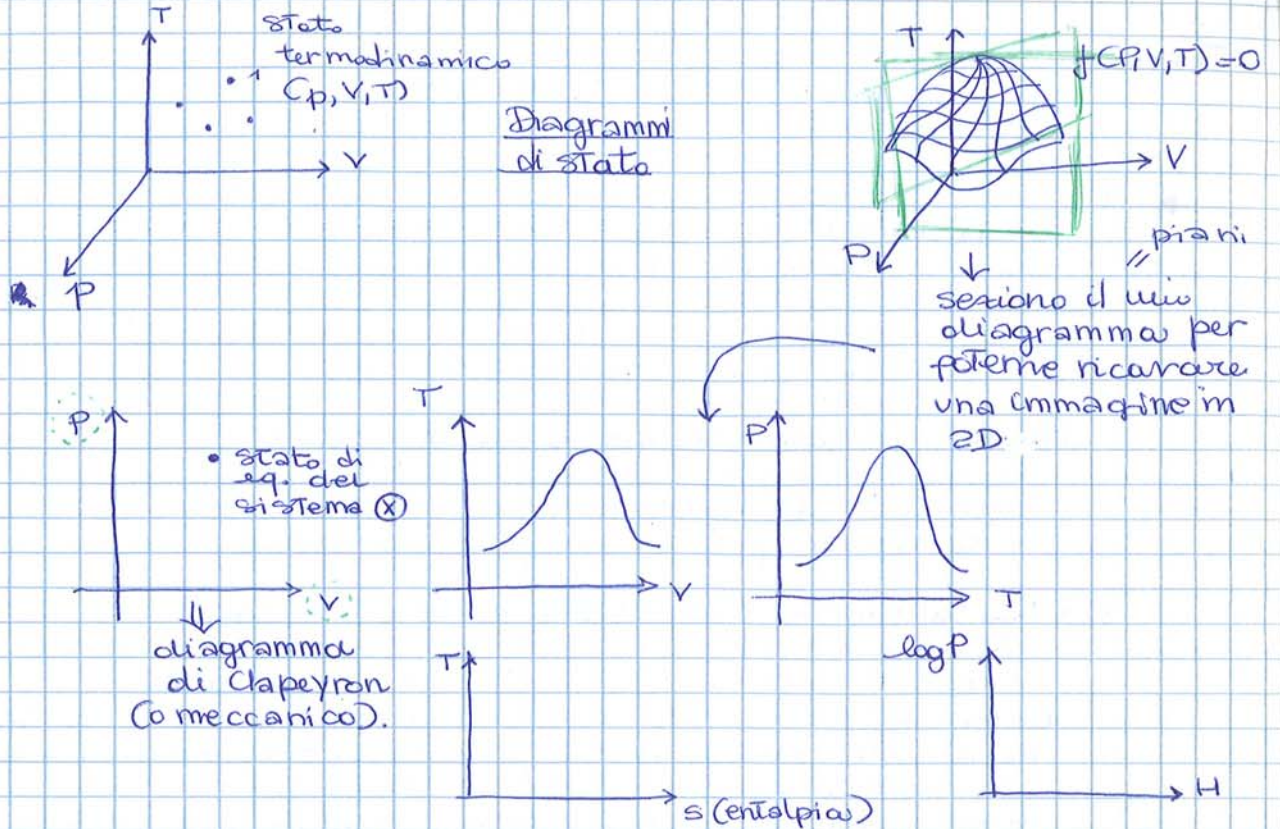 T
stato
termodinamico
(p, V, T)
1
V
P
Diagrammi
di stato
T
f(P,V,T)=0
V
P
// piani
seziono il mio
diagramma per
poterne ricavare
una immagine in
2D.
P
• stato di
eq. del
sistema ⓧ
V
⇓
diagramma
di Clapeyron
(o meccanico).
T
V
P
T
T
s (entalpia)
log P
H